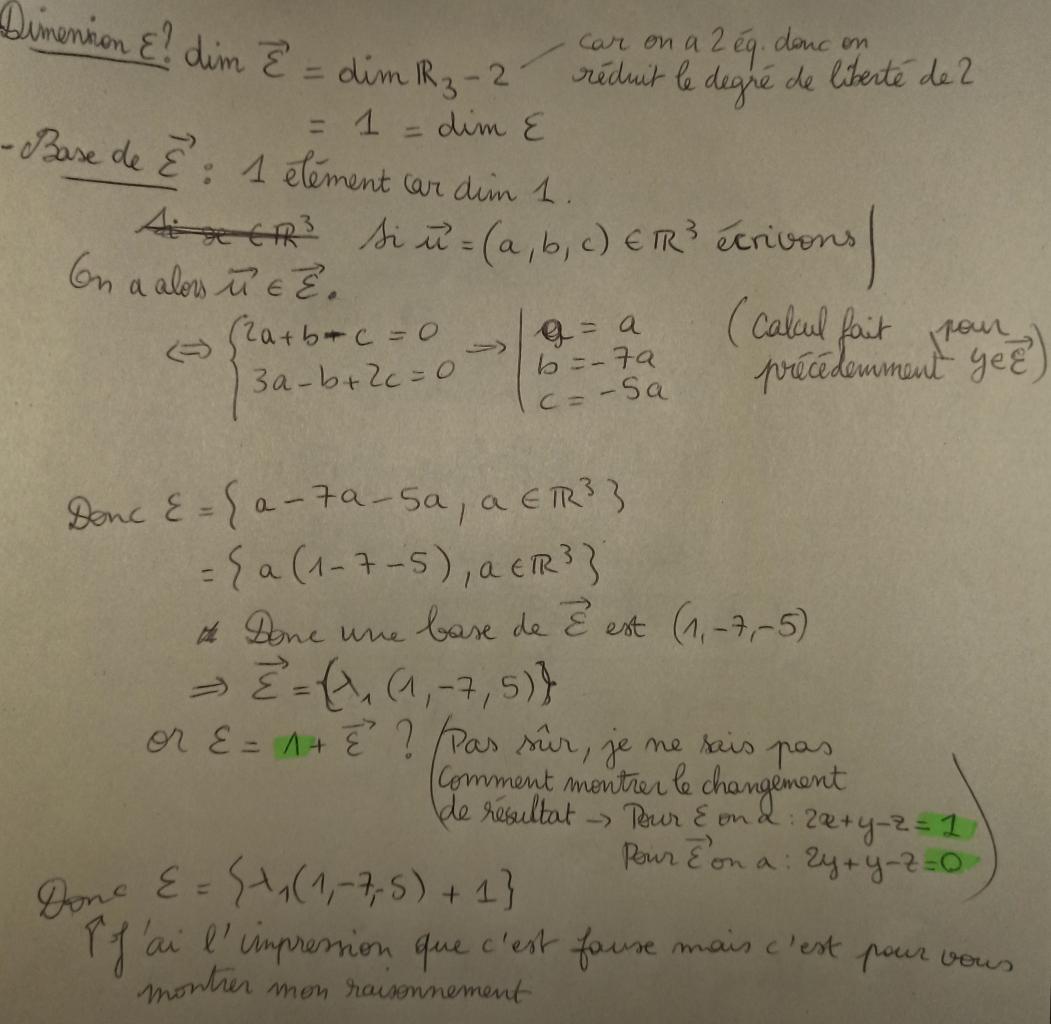 Dimension ℰ? dim ℰ⃗ = dim ℝ₃ - 2 car on a 2 éq. donc on
réduit le degré de liberté de 2
= 1 = dim ℰ
- Base de ℰ⃗ : 1 élément car dim 1.
Si x ∈ ℝ³ Si u⃗ = (a, b, c) ∈ ℝ³ écrivons
On a alors u⃗ ∈ ℰ⃗.
⇔ { 2a + b - c = 0 → | a = a (Calcul fait pour
3a - b + 2c = 0 b = -7a précédemment y∈ℰ⃗)
c = -5a
Donc ℰ = { a - 7a - 5a, a ∈ ℝ³ }
= { a (1 - 7 - 5), a ∈ ℝ³ }
Donc une base de ℰ⃗ est (1, -7, -5)
⇒ ℰ⃗ = {λ₁ (1, -7, 5)}
or ℰ = 1 + ℰ⃗ ? (Pas sûr, je ne sais pas
comment montrer le changement
de résultat → Pour ℰ on a : 2x + y - z = 1
Pour ℰ⃗ on a : 2y + y - z = 0)
Donc ℰ = {λ₁(1, -7, -5) + 1}
↑ J'ai l'impression que c'est fause mais c'est pour vous
montrer mon raisonnement